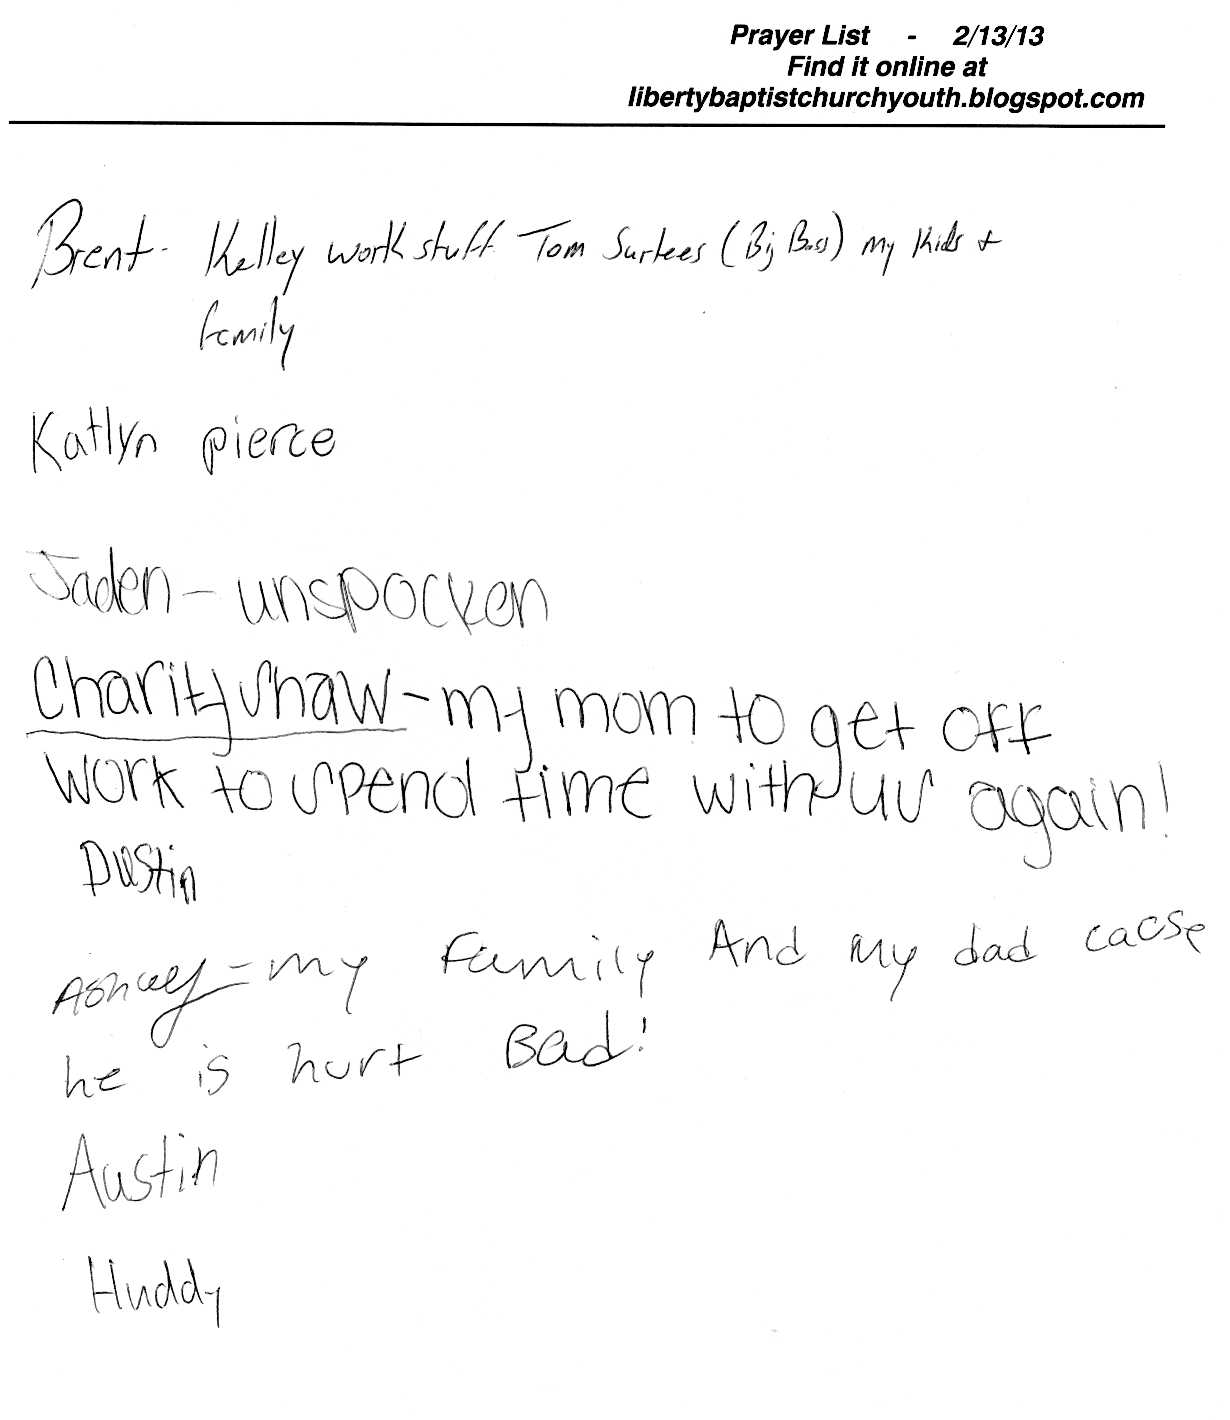 Prayer List - 2/13/13
Find it online at
libertybaptistchurchyouth.blogspot.com
Brent - Kelley work stuff Tom Surtees (Big Boss) my Kids +
family
Katlyn pierce
Jaden - unspocken
Charity Shaw - my mom to get off
work to spend time with us again!
Dustin
Ashley = my Family And my dad cacse
he is hurt Bad!
Austin
Huddy